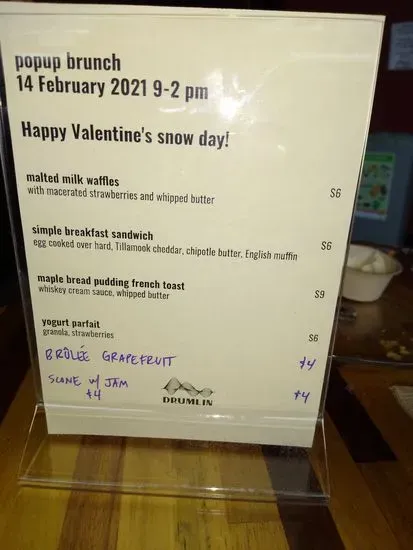 popup brunch
14 February 2021 9-2 pm
Happy Valentine's snow day!
malted milk waffles
with macerated strawberries and whipped butter $6
simple breakfast sandwich
egg cooked over hard, Tillamook cheddar, chipotle butter, English muffin $6
maple bread pudding french toast
whiskey cream sauce, whipped butter $9
yogurt parfait
granola, strawberries $6
BRÛLÉE GRAPEFRUIT $4
SCONE W/ JAM
$4 $4
DRUMLIN